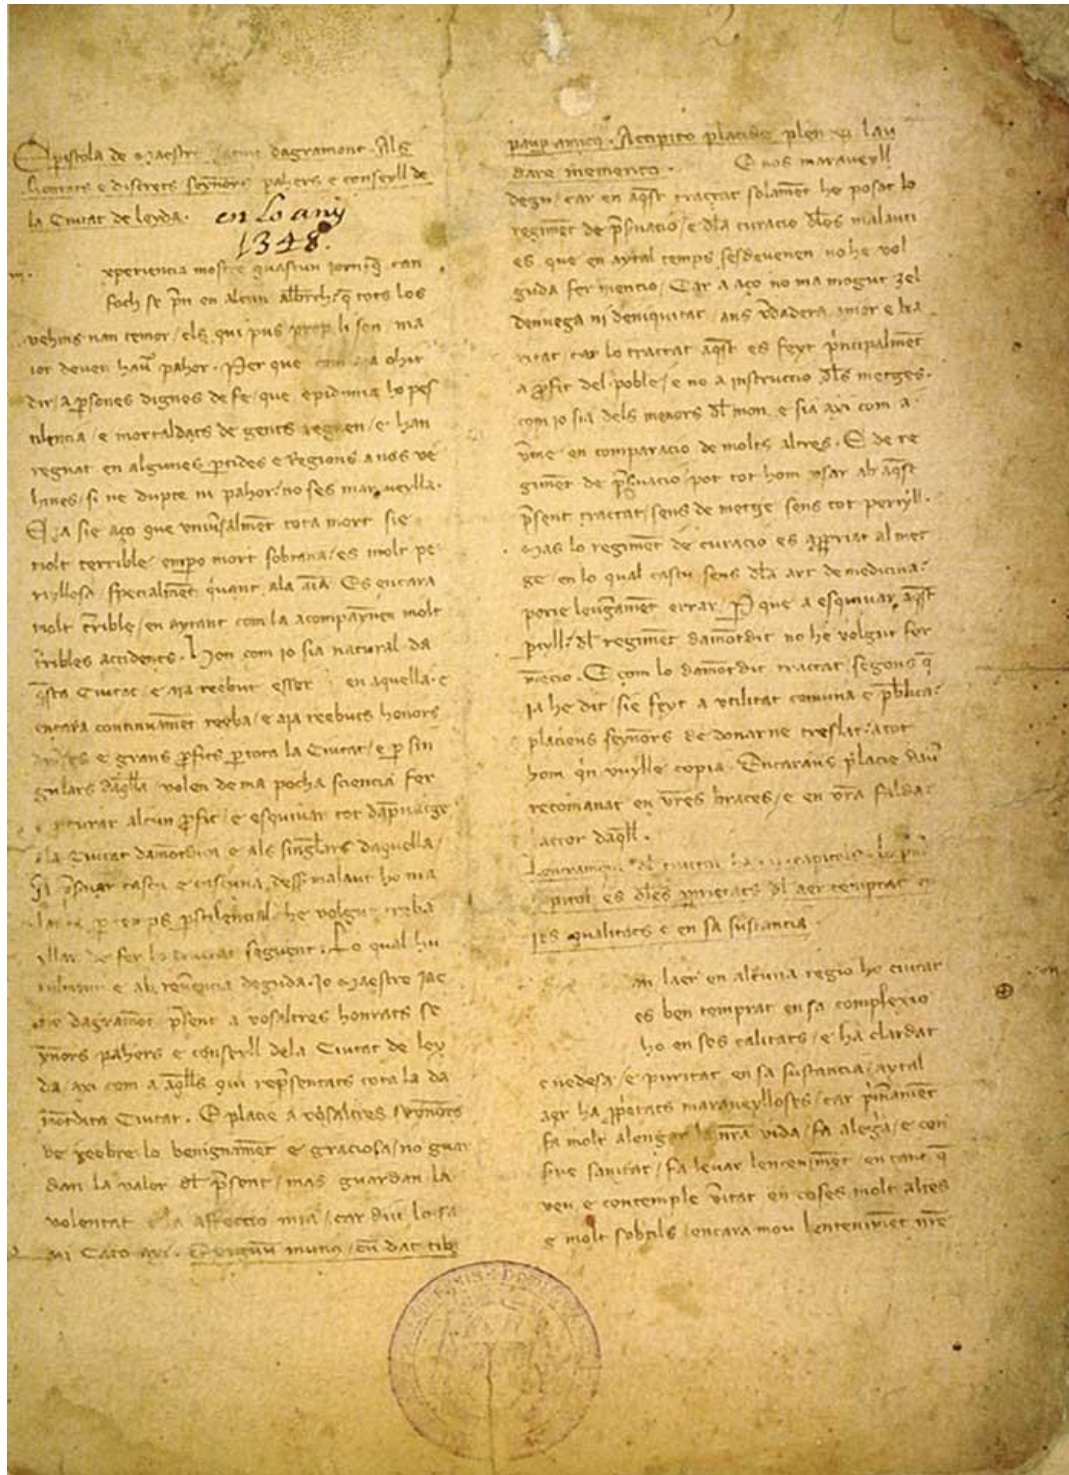 Epistola de Maestre Jacme dagramont. Als
honrats e discrets seynnors pahers e conseyll de
la Ciutat de leyda.
en lo any
1348.
xperiencia mostre quascun iorn q̄ can
foch se p̄n en alcun alb̄rch / q̄ tots los
vehins nan temor / els qui pus prop li son / ma
ior deven hau̅ pahor. Per que com ohit
dir / a p̱sones dignes de fe / que epidimia ho pes
tilencia / e mortaldats de gents regnen / e han
regnat en algunes p̱tides e Regions a nos ve
hines / si ne dupte ni pahor / no ses maraveylla.
sie aço que univ̄salmēt tota mort sie
molt terrible / empo mort sobtana / es molt pe
ryllosa / specialmēt quant ala aīa. Es encara
molt t̄rible / en aytant com la acompanyen molt
t̄ribles accidents. On com io sia natural da
q̄sta Ciutat e aia reebut esser en aquella. e
encara continuamēt reeba / e aia reebuts honors
e grans p̱fits p̱ tota la Ciutat / e p̱ sin
gulars daq̄lla / volen de ma pocha sciencia fer
e p̱curar alcun p̱fit / e esquivar tot dāpnatge
a la Ciutat damōtdita e als singlars daquella /
p̄svar cascu e cascuna dess̄ malaut ho ma
temps pestilencial / he volgut treba
llar de fer lo tractat seguent. Lo qual hu
milment e ab rev̄encia deguda. Io Maestre Jac
me dagramōt p̄sent a vosaltres honrats se
ynnors pahers e conseyll dela Ciutat de ley
da / axi com a aq̄lls qui rep̄sentats tota la da
mōtdita Ciutat. E placie a vosaltres seynnors
de reebre lo benignamēt e graciosa / no guar
dan la valor dl p̄sent / mas guardan la
volentat e la affeccio mia / car diu lo sa
vi Cato axi. Exiguum munus / cū dat tibi
paup amicq. Accipito placide plen et lau
dare memento. E nos maraveyll
degu / car en aq̄st tractat solamēt he posat lo
regimēt de p̄svacio / e dla curacio dles malauti
es que en aytal temps sesdevenen no he vol
guda fer mencio / Car a aço no ma mogut zel
denvega ni deniquitat / ans v̄dadera amor e ka
ritat car lo tractat aq̄st es feyt p̄ncipalmēt
a p̱fit del poble / e no a instruccio dls metges.
com io sia dels menors dl mon. e sia axi com a
v̄me en comparacio de molts altres. E de re
gimēt de p̄svacio / pot tot hom usar ab aq̄st
p̄sent tractat / sens de metge sens tot peryll.
Mas lo regimēt de curacio es app̱riat al met
ge / en lo qual cascu sens dla art de medicina
porie leugamēt errar / P̱ que a esquivar aq̄st
p̱ryll dl regimēt damōtdit no he volgut fer
mēcio. E com lo damōtdit tractat segons q̄
ia he dit / sie feyt a utilitat comuna e publica
placiens seynnors de donarne treslat / a tot
hom qn vuylle copia. Encaraus placie hau̅
recomanat en vr̄es braces / e en vr̄a falda
lactor daq̄ll.
dl tractat ha capitols. lo p̄m
pitol es dles p̱prietats dl aer temprat en
ses qualitats e en sa sustancia.
an laer en alcuna regio ho ciutat
es ben temprat en sa complexio
ho en ses calitats / e ha clardat
e nedesa / e puritat en sa sustancia / aytal
aer ha p̱p̱etats maraveylloses / car p̄mamēt
fa molt alongar la nr̄a vida / fa alegra / e con
sive sanitat / fa levar lentenimēt / en tant q̄
veu e contemple v̄itat en coses molt altes
e molt sobtils / encara mou lentenimēt nr̄e